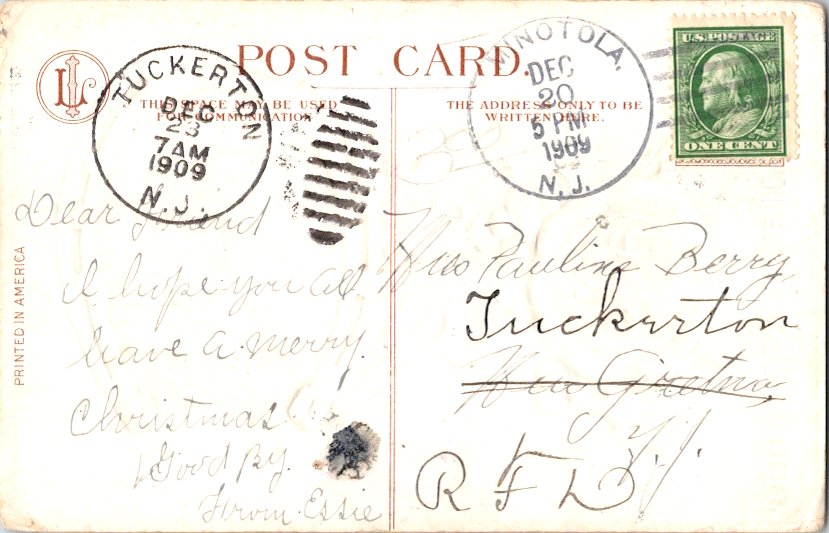 POST CARD.
THIS SPACE MAY BE USED
FOR COMMUNICATION
THE ADDRESS ONLY TO BE
WRITTEN HERE.
TUCKERTON
DEC
23
7 AM
1909
N.J.
MINOTOLA,
DEC
20
5 PM
1909
N.J.
U.S. POSTAGE
ONE CENT
PRINTED IN AMERICA
Dear Friend
I hope you all
have a merry
Christmas
Good By.
From Essie
Miss Pauline Berry
Tuckerton
New Gretna
N.J.
R F D